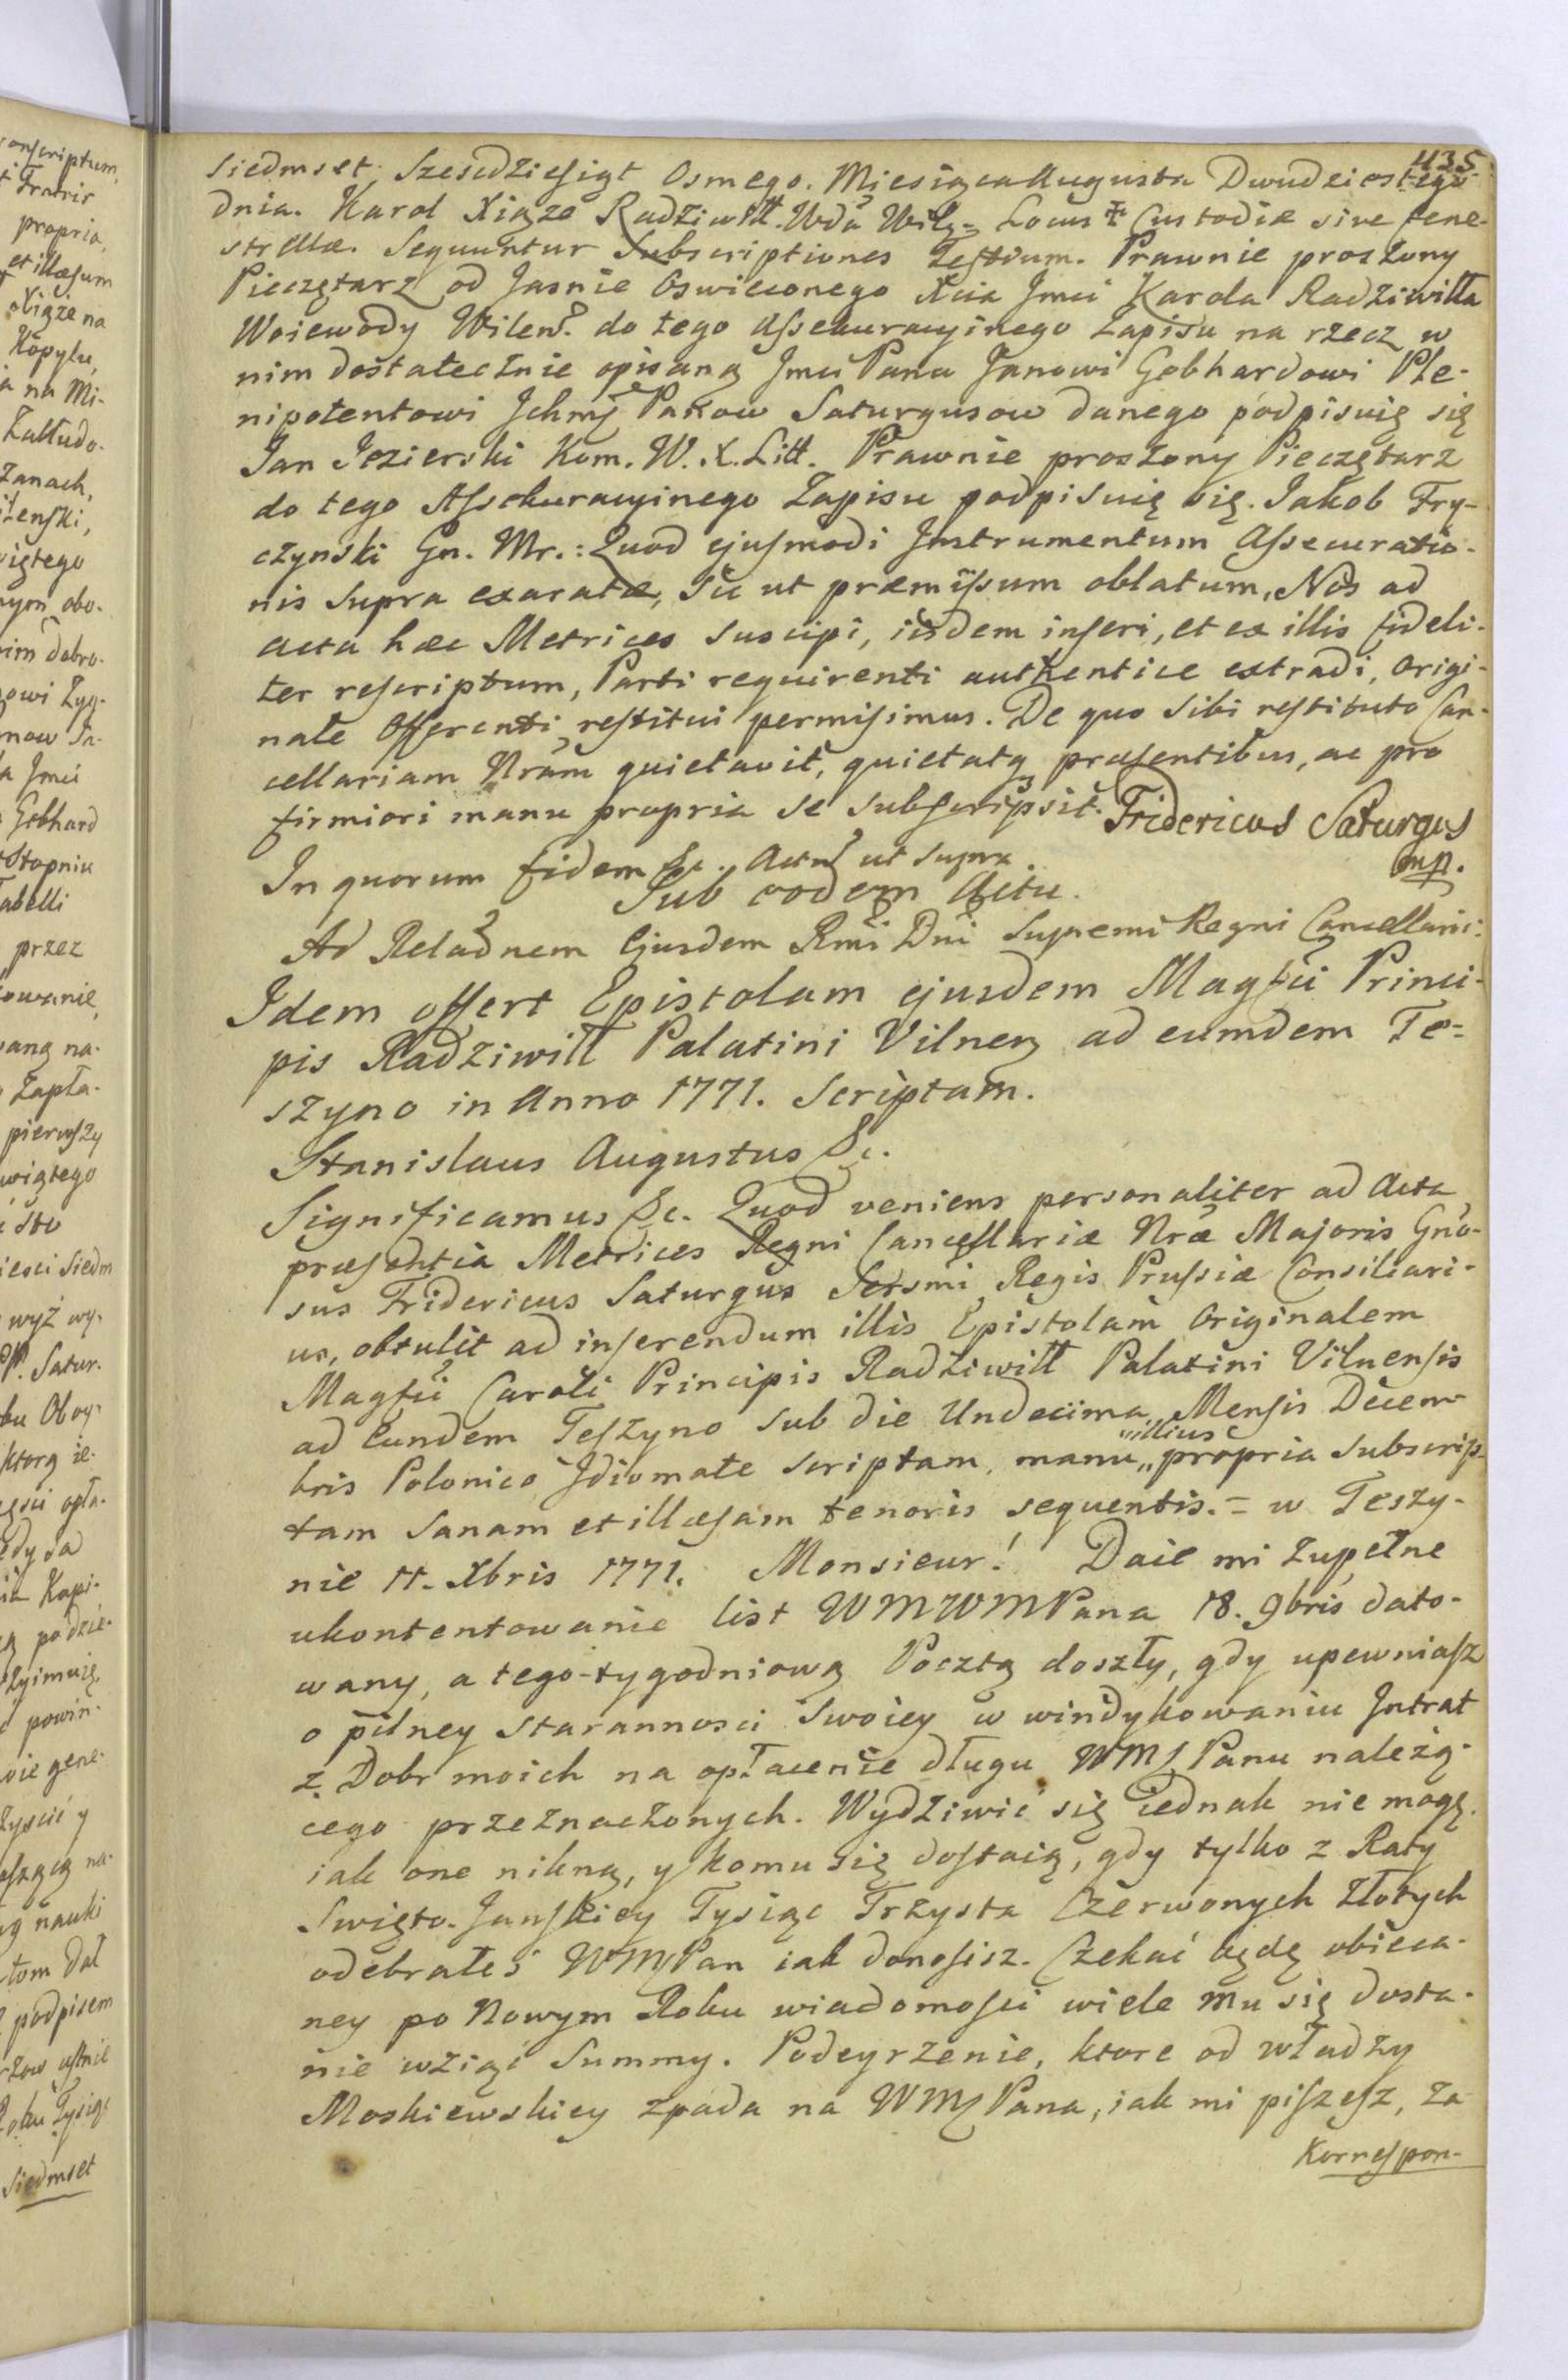 435
siedmset, Szescdziesigt Osmego. Miesiąca Augusta Dwudziestego
dnia. Karol Xiąze Radziwiłł. Wda Wilz= Locus ‡ Custodiæ sive fene-
strellæ. Sequuntur Subscriptiones Testium. Prawnie proszony
Pieczętarz od Jasnie Oswieconego Xcia Jmci Karola Radziwiłła
Woiewody Wileń. do tego Assekuracyinego Zapisu na rzecz w
nim dostatecznie opisaną Jmci Panu Janowi Gebhardowi Ple-
nipotentowi Ichmć Panow Saturgusow danego podpisuię się
Jan Jezierski Kom. W. X. Litt. Prawnie proszony Pieczętarz
do tego Assekuracyinego Zapisu podpisuię się. Jakob Fry-
czynski Gn. Mr.: Quod ejusmodi Instrumentum Assecuratio-
nis supra exaratæ, sic ut præmissum oblatum, Nos ad
acta hæc Metrices suscipi, iisdem inseri, et ex illis fideli-
ter rescriptum, Parti requirenti authentice extradi, Origi-
nale Offerenti restitui permisimus. De quo sibi restituto Can-
cellariam Nram quietavit, quietatq præsentibus, ac pro
firmiori manu propria se subscripsit. Fridericus Saturgus
mp.
In quorum fidem &c. Actũ ut supra.
Sub eodem Actu.
Ad Relaõnem Ejusdem Rmi Dni Supremi Regni Cancellarii.
Idem offert Epistolam ejusdem Magfci Princi-
pis Radziwiłł Palatini Vilnen ad eumdem Te=
szyno in Anno 1771. Scriptam.
Stanislaus Augustus &c.
Significamus &c. Quod veniens personaliter ad Acta
præsentia Metrices Regni Cancellariæ Nræ Majoris Gno-
sus Fridericus Saturgus Sersmi Regis Prussiæ Consiliari-
us, obtulit ad inserendum illis Epistolam Originalem
Magfci Caroli Principis Radziwiłł Palatini Vilnensis
ad Eundem Teszyno sub die Undecima Mensis Decem-
illius
bris Polonico Idiomate scriptam, manu „ propria subscrip-
tam sanam et illæsam tenoris sequentis. = w Teszy-
nie 11. Xbris 1771. Monsieur! Daie mi zupełne
ukontentowanie list WMWMPana 18. 9bris dato-
wany, a tego-tygodniową Pocztą doszły, gdy upewniasz
o pilney starannosci swoiey w windykowaniu Intrat
z Dobr moich na opłacenie długu WMPanu należą-
cego przeznaczonych. Wydziwić się iednak nie mogę
iak one nikną, y komu się dostaią, gdy tylko z Raty
Swięto-Janskiey Tysiąc Trzysta Czerwonych Złotych
odebrałeś WMPan iak donosisz. Czekać będę obieca-
ney po Nowym Roku wiadomosci wiele mu się dosta-
nie wziąć Summy. Podeyrzenie, ktore od władzy
Moskiewskiey zpada na WMPana, iak mi piszesz, za
Korrespon-